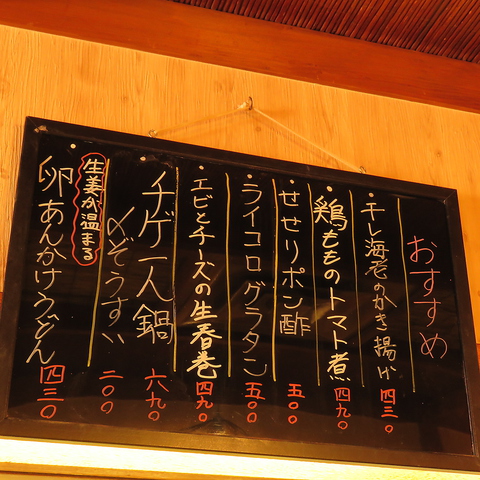 おすすめ
・干し海老のかき揚げ 四三〇
・鶏もものトマト煮 四九〇
・せせりポン酢 五〇〇
・ライコログラタン 五〇〇
・エビとチーズの生春巻 四九〇
・チゲ一人鍋 六九〇
〆ぞうすい 二〇〇
生姜が温まる
卵あんかけうどん 四三〇